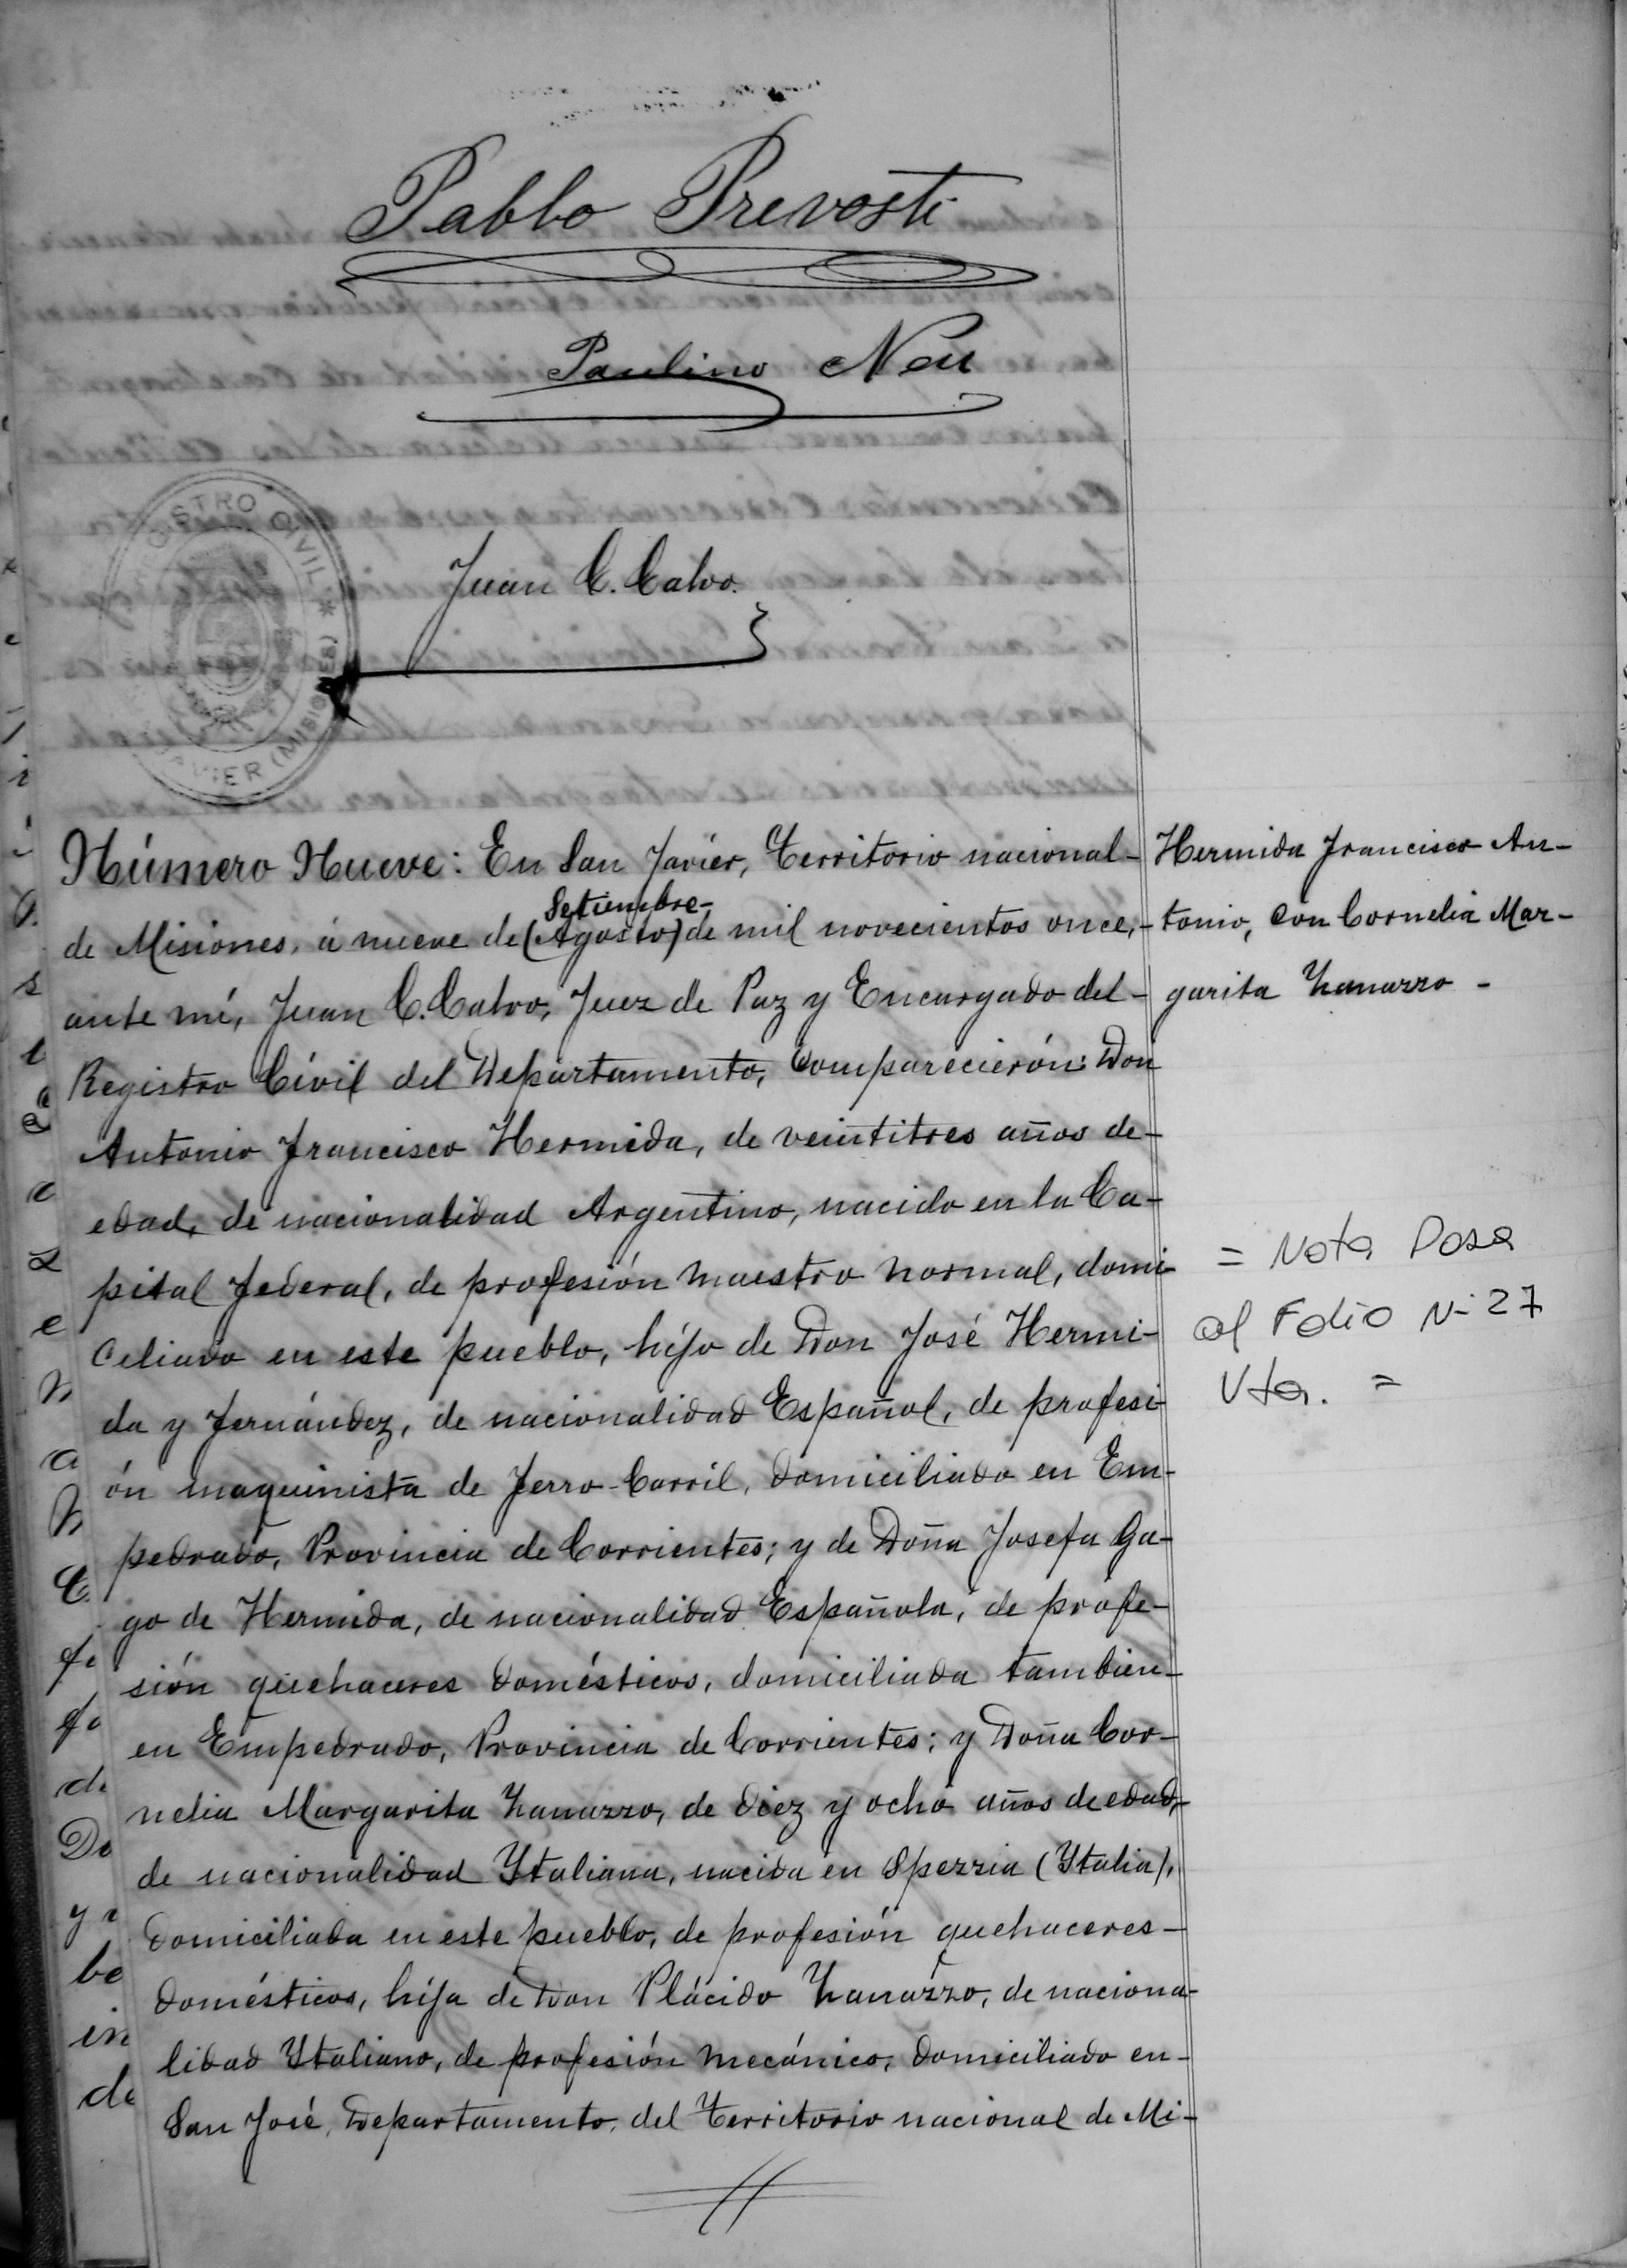 Pablo Prevosti
Paulino Neu
REGISTRO CIVIL * (MISIONES)
JAVIER
Juan C. Calvo.
Número Nueve: En San Javier, Territorio nacional-
Setiembre-
de Misiones, á nueve de (Agosto) de mil novecientos once,-
ante mí, Juan C. Calvo, Juez de Paz y Encargado del-
Registro Cívil del Departamento, comparecierón: Don
Antonio Francisco Hermida, de veintitres años de-
edad, de nacionalidad Argentino, nacido en la Ca-
pital federal, de profesión maestro normal, domi-
ciliado en este pueblo, hijo de Don José Hermi-
da y Fernández, de nacionalidad Español, de profesi-
ón maquinista de Ferro-Carril, domiciliado en Em-
pedrado, Provincia de Corrientes; y de Doña Josefa Ga-
go de Hermida, de nacionalidad Española, de profe-
sión quehaceres domésticos, domiciliada tambien-
en Empedrado, Provincia de Corrientes; y Doña Cor-
nelia Margarita Zanazzo, de diez y ocho años de edad,-
de nacionalidad Ytaliana, nacida en Spezzia (Ytalia),
domiciliada en este pueblo, de profesión quehaceres-
domésticos, hija de Don Plácido Zanazzo, de naciona-
lidad Ytaliano, de profesión mecánico, domiciliado en-
San José, Departamento, del Territorio nacional de Mi-
Hermida Francisco An-
tonio, con Cornelia Mar-
garita Zanazzo -
= Nota Pasa
al Folio N- 27
Vta. =